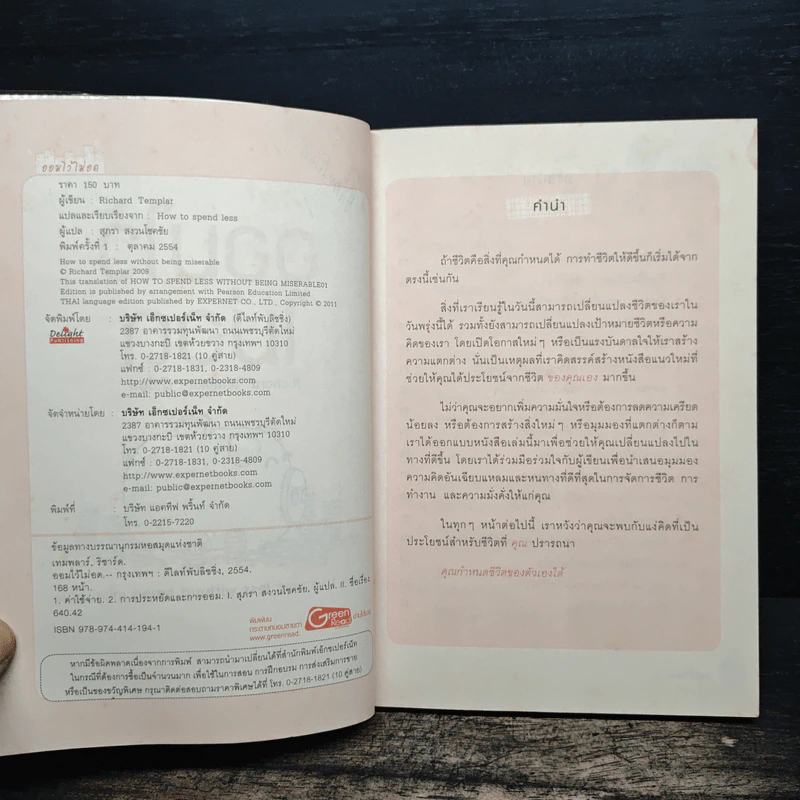 ออมไว้ไม่อด
ราคา 150 บาท
ผู้เขียน : Richard Templar
แปลและเรียบเรียงจาก : How to spend less
ผู้แปล : สุภรา สงวนโชคชัย
พิมพ์ครั้งที่ 1 : ตุลาคม 2554
How to spend less without being miserable
© Richard Templar 2009
This translation of HOW TO SPEND LESS WITHOUT BEING MISERABLE01
Edition is published by arrangement with Pearson Education Limited
THAI language edition published by EXPERNET CO., LTD., Copyright © 2011
จัดพิมพ์โดย : บริษัท เอ็กซเปอร์เน็ท จำกัด (ดีไลท์พับลิชชิ่ง)
Delight
PUBLISHING
2387 อาคารรวมทุนพัฒนา ถนนเพชรบุรีตัดใหม่
แขวงบางกะปิ เขตห้วยขวาง กรุงเทพฯ 10310
โทร. 0-2718-1821 (10 คู่สาย)
แฟกซ์ : 0-2718-1831, 0-2318-4809
http://www.expernetbooks.com
e-mail: public@expernetbooks.com
จัดจำหน่ายโดย : บริษัท เอ็กซเปอร์เน็ท จำกัด
2387 อาคารรวมทุนพัฒนา ถนนเพชรบุรีตัดใหม่
แขวงบางกะปิ เขตห้วยขวาง กรุงเทพฯ 10310
โทร. 0-2718-1821 (10 คู่สาย)
แฟกซ์ : 0-2718-1831, 0-2318-4809
http://www.expernetbooks.com
e-mail: public@expernetbooks.com
พิมพ์ที่ : บริษัท แอคทีฟ พริ้นท์ จำกัด
โทร. 0-2215-7220
ข้อมูลทางบรรณานุกรมหอสมุดแห่งชาติ
เทมพลาร์, ริชาร์ด.
ออมไว้ไม่อด.-- กรุงเทพฯ : ดีไลท์พับลิชชิ่ง, 2554.
168 หน้า.
1. ค่าใช้จ่าย. 2. การประหยัดและการออม. I. สุภรา สงวนโชคชัย, ผู้แปล. II. ชื่อเรื่อง
640.42
ISBN 978-974-414-194-1
พิมพ์บน
กระดาษถนอมสายตา
www.greenread.
Green
Read
หากมีข้อผิดพลาดเนื่องจากการพิมพ์ สามารถนำมาเปลี่ยนได้ที่สำนักพิมพ์เอ็กซเปอร์เน็ท
ในกรณีที่ต้องการซื้อเป็นจำนวนมาก เพื่อใช้ในการสอน การฝึกอบรม การส่งเสริมการขาย
หรือเป็นของขวัญพิเศษ กรุณาติดต่อสอบถามราคาพิเศษได้ที่ โทร. 0-2718-1821 (10 คู่สาย)
คำนำ
ถ้าชีวิตคือสิ่งที่คุณกำหนดได้ การทำชีวิตให้ดีขึ้นก็เริ่มได้จาก
ตรงนี้เช่นกัน
สิ่งที่เราเรียนรู้ในวันนี้สามารถเปลี่ยนแปลงชีวิตของเราใน
วันพรุ่งนี้ได้ รวมทั้งยังสามารถเปลี่ยนแปลงเป้าหมายชีวิตหรือความ
คิดของเรา โดยเปิดโอกาสใหม่ๆ หรือเป็นแรงบันดาลใจให้เราสร้าง
ความแตกต่าง นั่นเป็นเหตุผลที่เราคิดสรรค์สร้างหนังสือแนวใหม่ที่
ช่วยให้คุณได้ประโยชน์จากชีวิต ของคุณเอง มากขึ้น
ไม่ว่าคุณจะอยากเพิ่มความมั่นใจหรือต้องการลดความเครียด
น้อยลง หรือต้องการสร้างสิ่งใหม่ๆ หรือมุมมองที่แตกต่างก็ตาม
เราได้ออกแบบหนังสือเล่มนี้มาเพื่อช่วยให้คุณเปลี่ยนแปลงไปใน
ทางที่ดีขึ้น โดยเราได้ร่วมมือร่วมใจกับผู้เขียนเพื่อนำเสนอมุมมอง
ความคิดอันเฉียบแหลมและหนทางที่ดีที่สุดในการจัดการชีวิต การ
ทำงาน และความมั่งคั่งให้แก่คุณ
ในทุกๆ หน้าต่อไปนี้ เราหวังว่าคุณจะพบกับแง่คิดที่เป็น
ประโยชน์สำหรับชีวิตที่ คุณ ปรารถนา
คุณกำหนดชีวิตของตัวเองได้